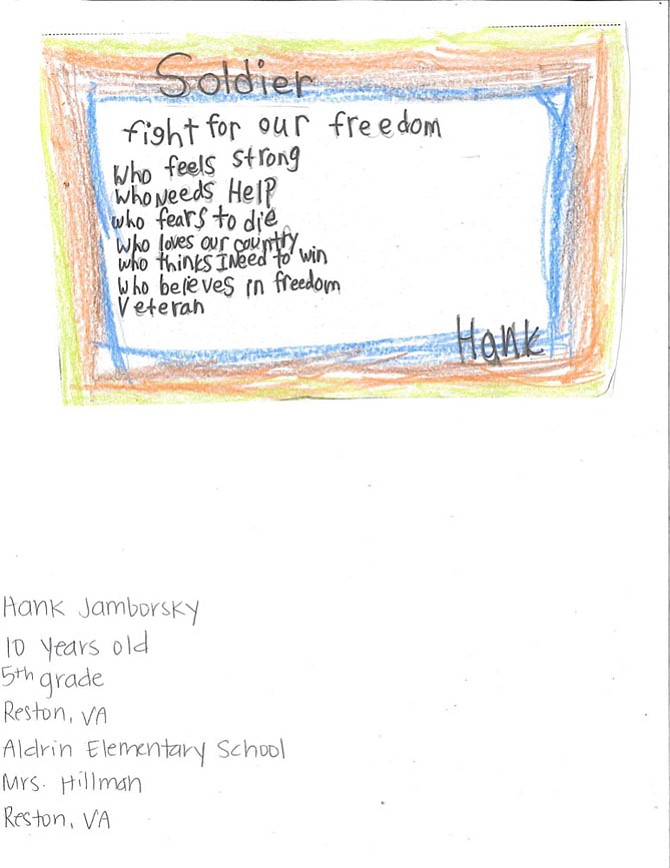 Soldier
fight for our freedom
Who feels strong
Who Needs Help
who fears to die
Who loves our country
who thinks I Need to win
Who beleves in freedom
Veteran
Hank
Hank Jamborsky
10 years old
5th grade
Reston, VA
Aldrin Elementary School
Mrs. Hillman
Reston, VA